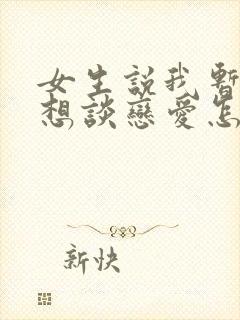 女生説我暫
想談戀愛怎
新快